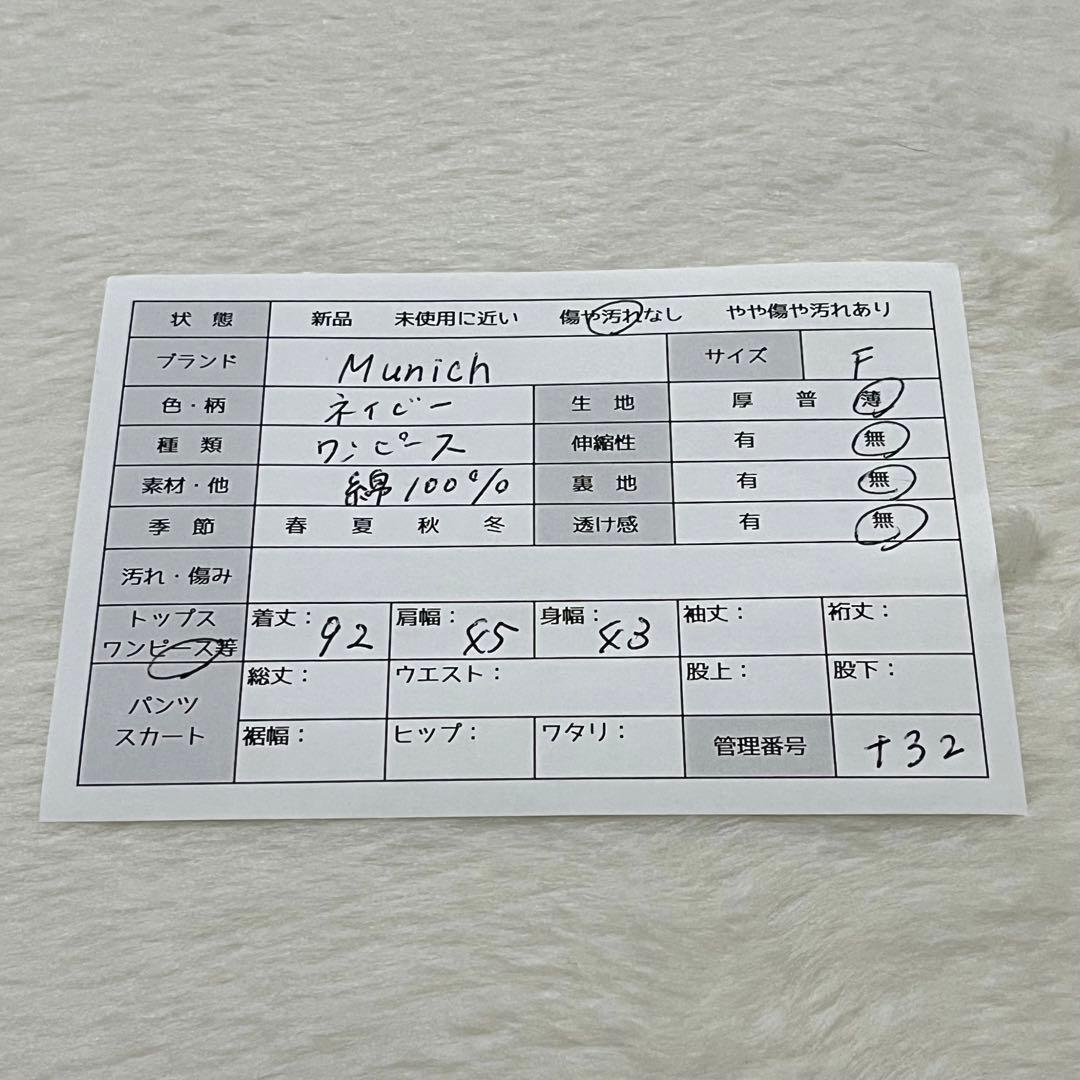 状態 新品 未使用に近い 傷や汚れなし やや傷や汚れあり
ブランド Munich サイズ F
色・柄 ネイビー 生地 厚 普 薄
種類 ワンピース 伸縮性 有 無
素材・他 綿100% 裏地 有 無
季節 春 夏 秋 冬 透け感 有 無
汚れ・傷み
トップス ワンピース等 着丈：92 肩幅：45 身幅：43 袖丈： 裄丈：
パンツ スカート 総丈： ウエスト： 股上： 股下：
裾幅： ヒップ： ワタリ： 管理番号 +32